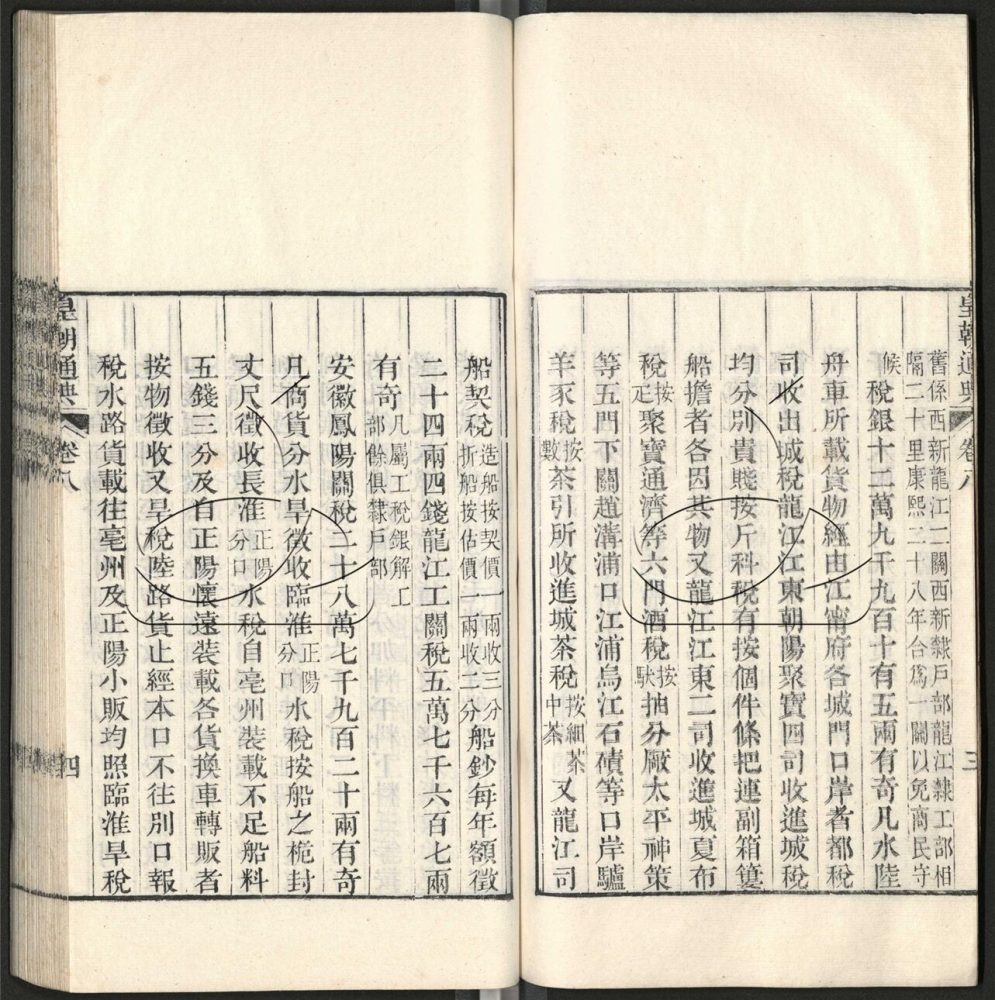 皇朝通典 卷八 三
舊係西新龍江二關西新隸戶部龍江隸工部相
隔二十里康熙二十八年合爲一關以免商民守
候稅銀十二萬九千九百十有五兩有奇凡水陸
舟車所載貨物經由江甯府各城門口岸者都稅
司收出城稅龍江江東朝陽聚寶四司收進城稅
均分別貴賤按斤科稅有按個件條把連副箱簍
船擔者各因其物又龍江江東二司收進城夏布
稅按疋聚寶通濟等六門酒稅按𡙇抽分厰太平神策
等五門下關趙溝浦口江浦烏江石磧等口岸驢
羊豕稅按數茶引所收進城茶稅按細茶中茶又龍江司
船契稅造船按契價一兩收三分折船按估價一兩收二分船鈔每年額徵
二十四兩四錢龍江工關稅五萬七千六百七兩
有奇凡屬工稅銀解工部餘俱隸戶部
安徽鳳陽關稅二十八萬七千九百二十兩有奇
凡商貨分水旱徵收臨淮正陽分口水稅按船之桅封
丈尺徵收長淮正陽分口水稅自亳州裝載不足船料
五錢三分及自正陽懷遠裝載各貨換車轉販者
按物徵收又旱稅陸路貨止經本口不往別口報
稅水路貨載往亳州及正陽小販均照臨淮旱稅
皇朝通典 卷八 四